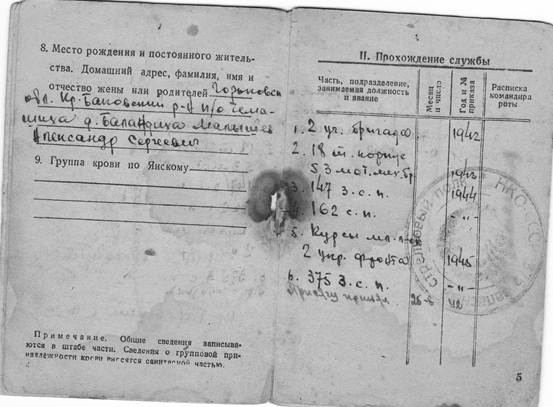 8. Место рождения и постоянного житель-
ства. Домашний адрес, фамилия, имя и
отчество жены или родителей Горьковск
обл. Кр. Баковский р-н п/о
д. Малышев
Александр Сергеевич
9. Группа крови по Янскому
Примечание. Общие сведения записыва-
ются в штабе части. Сведения о групповой при-
надлежности крови вносятся санитарной частью.
II. Прохождение службы
Часть, подразделение,
занимаемая должность
и звание
Месяц
и число
Год и №
приказа
Расписка
командира
роты
1. 2 уч. бригада 1942
2. 18 т. корпус
53 мот. бр. 1943
3. 147 З.с.п. 1944
162 с.п. -"-
5. Курсы
2 укр. фронта 1945
6. 375 З.с.п. -"-
Присягу принял
СТРЕЛКОВЫЙ НКО-СССР
5